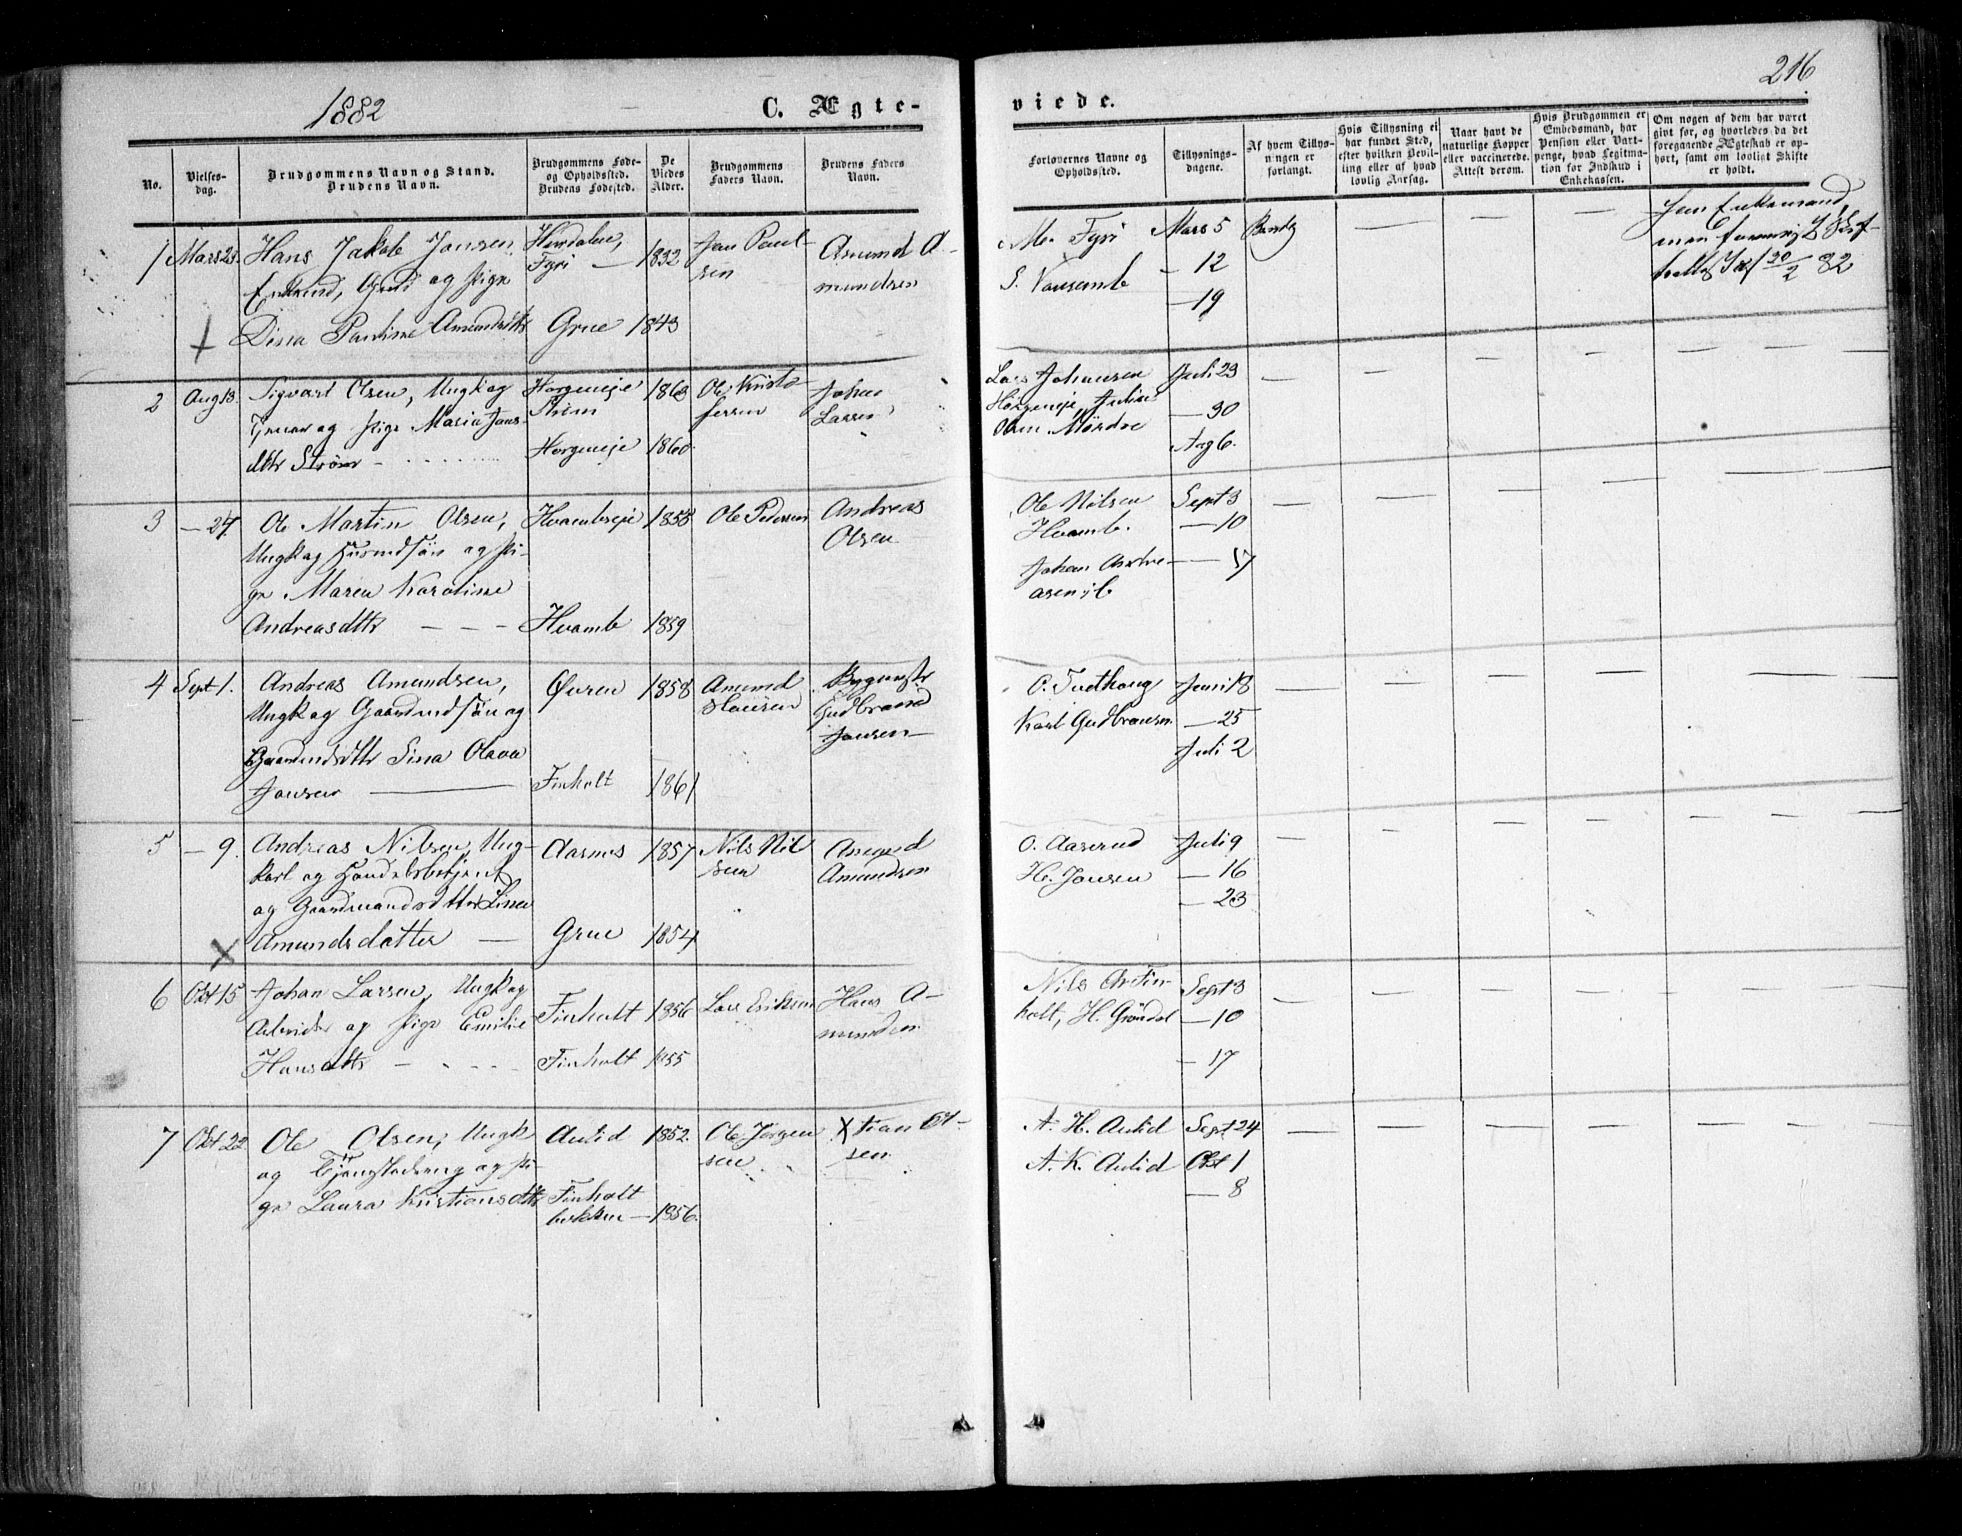 1882
C. Ægte-
viede.
216
No.
Vielses-
dag.
Brudgommens Navn og Stand.
Brudens Navn.
Brudgommens Føde-
og Opholdssted.
Brudens Fødested.
De
Viedes
Alder.
Brudgommens
Faders Navn.
Brudens Faders
Navn.
Forlovernes Navne og
Opholdssted.
Tillysnings-
dagene.
Af hvem Tillys-
ningen er
forlangt.
Hvis Tillysning ei
har fundet Sted,
efter hvilken Bevil-
ling eller af hvad
lovlig Aarsag.
Naar havt de
naturlige Kopper
eller vaccinerede.
Attest derom.
Hvis Brudgommen er
Embedsmand, har
Pension eller Vart-
penge, hvad Legitma-
tion for Indskud i
Enkekassen.
Om nogen af dem har været
givt for, og hvorledes da det
foregaaende Ægteskab er op-
hørt, samt om lovligt Skifte
er holdt.
1 Mars 23. Hans Jakob Jansen
og Pige
Dina Pauline Amundsdtr
Fyri 1832
Grue 1843
Jan Paul-
sen
Amund A-
mundsen
M. Fyri
Mars 5
— 12
— 19
— 20/2 82
2 Aug 13. Sigvart Olsen, Ungk og
og Pige Maria Jans-
dtr Strøm
Horgeneje 1863
Strøm
Horgeneje 1860
Ole Kristo-
fersen
Johan
Larsen
Lars Johansen
Horgeneje
Juli 23
— 30
Aug 6.
3 — 24. Ole Martin Olsen,
Ungk og Husmdsøn og Pi-
ge Maren Karoline
Andreasdtr — — —
Hvambseje 1858
Hvamb 1859
Ole Pedersen
Andreas
Olsen
Ole Nilsen
Hvamb.
Johan Andre-
asen ib
Sept 3
— 10
— 17
4 Sept 1. Andreas Amundsen,
Ungk og Gaardmdsøn og
Gaardmdsdtr Lina Olava
Jansen —
Øvren 1858
Finholt 1861
Amund
Gudbrand
Jansen
Karl Gudbransen
Juni 18
— 25
Juli 2
5 — 9. Andreas Nilsen, Ung-
karl og Handelsbetjent
og Gaardmandsdatter Lina
Amundsdatter —
Aarnes 1857
Grue 1854
Nils Nil
sen
Amund
Amundsen
O. Aaserud
H. Jansen
Juli 9
— 16
— 23
6 Okt 15 Johan Larsen, Ungk og
Arbeider og Pige Emilie
Hansdtr
Finholt 1856
Finholt 1855
Lars Eriksen
Hans A-
mundsen
Sept 3
— 10
— 17
7 Okt 22 Ole Olsen, Ungk
og og Pi-
ge Laura Kristiansdtr
Aulid 1852.
Finholt
bakken — 1856.
Ole Jørgen
sen
Xtian
sen
A. H. Aulid
A. K. Aulid
Sept 24
Okt 1
— 8